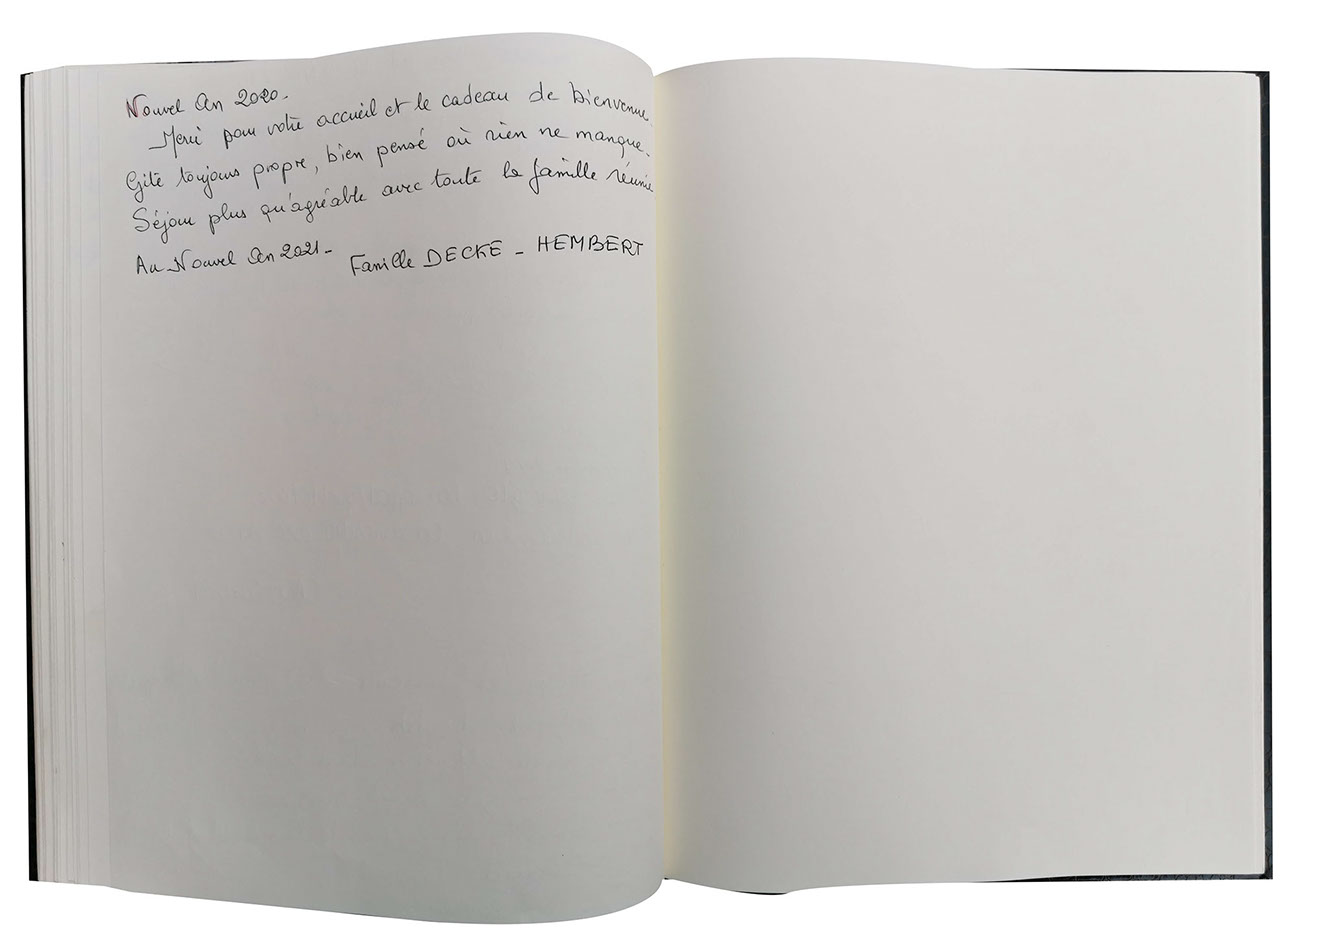 Nouvel An 2020-
Merci pour votre accueil et le cadeau de bienvenue.
Gite toujours propre, bien pensé où rien ne manque.
Séjour plus qu'agréable avec toute la famille réunie
Au Nouvel An 2021- Famille DECKE - HEMBERT